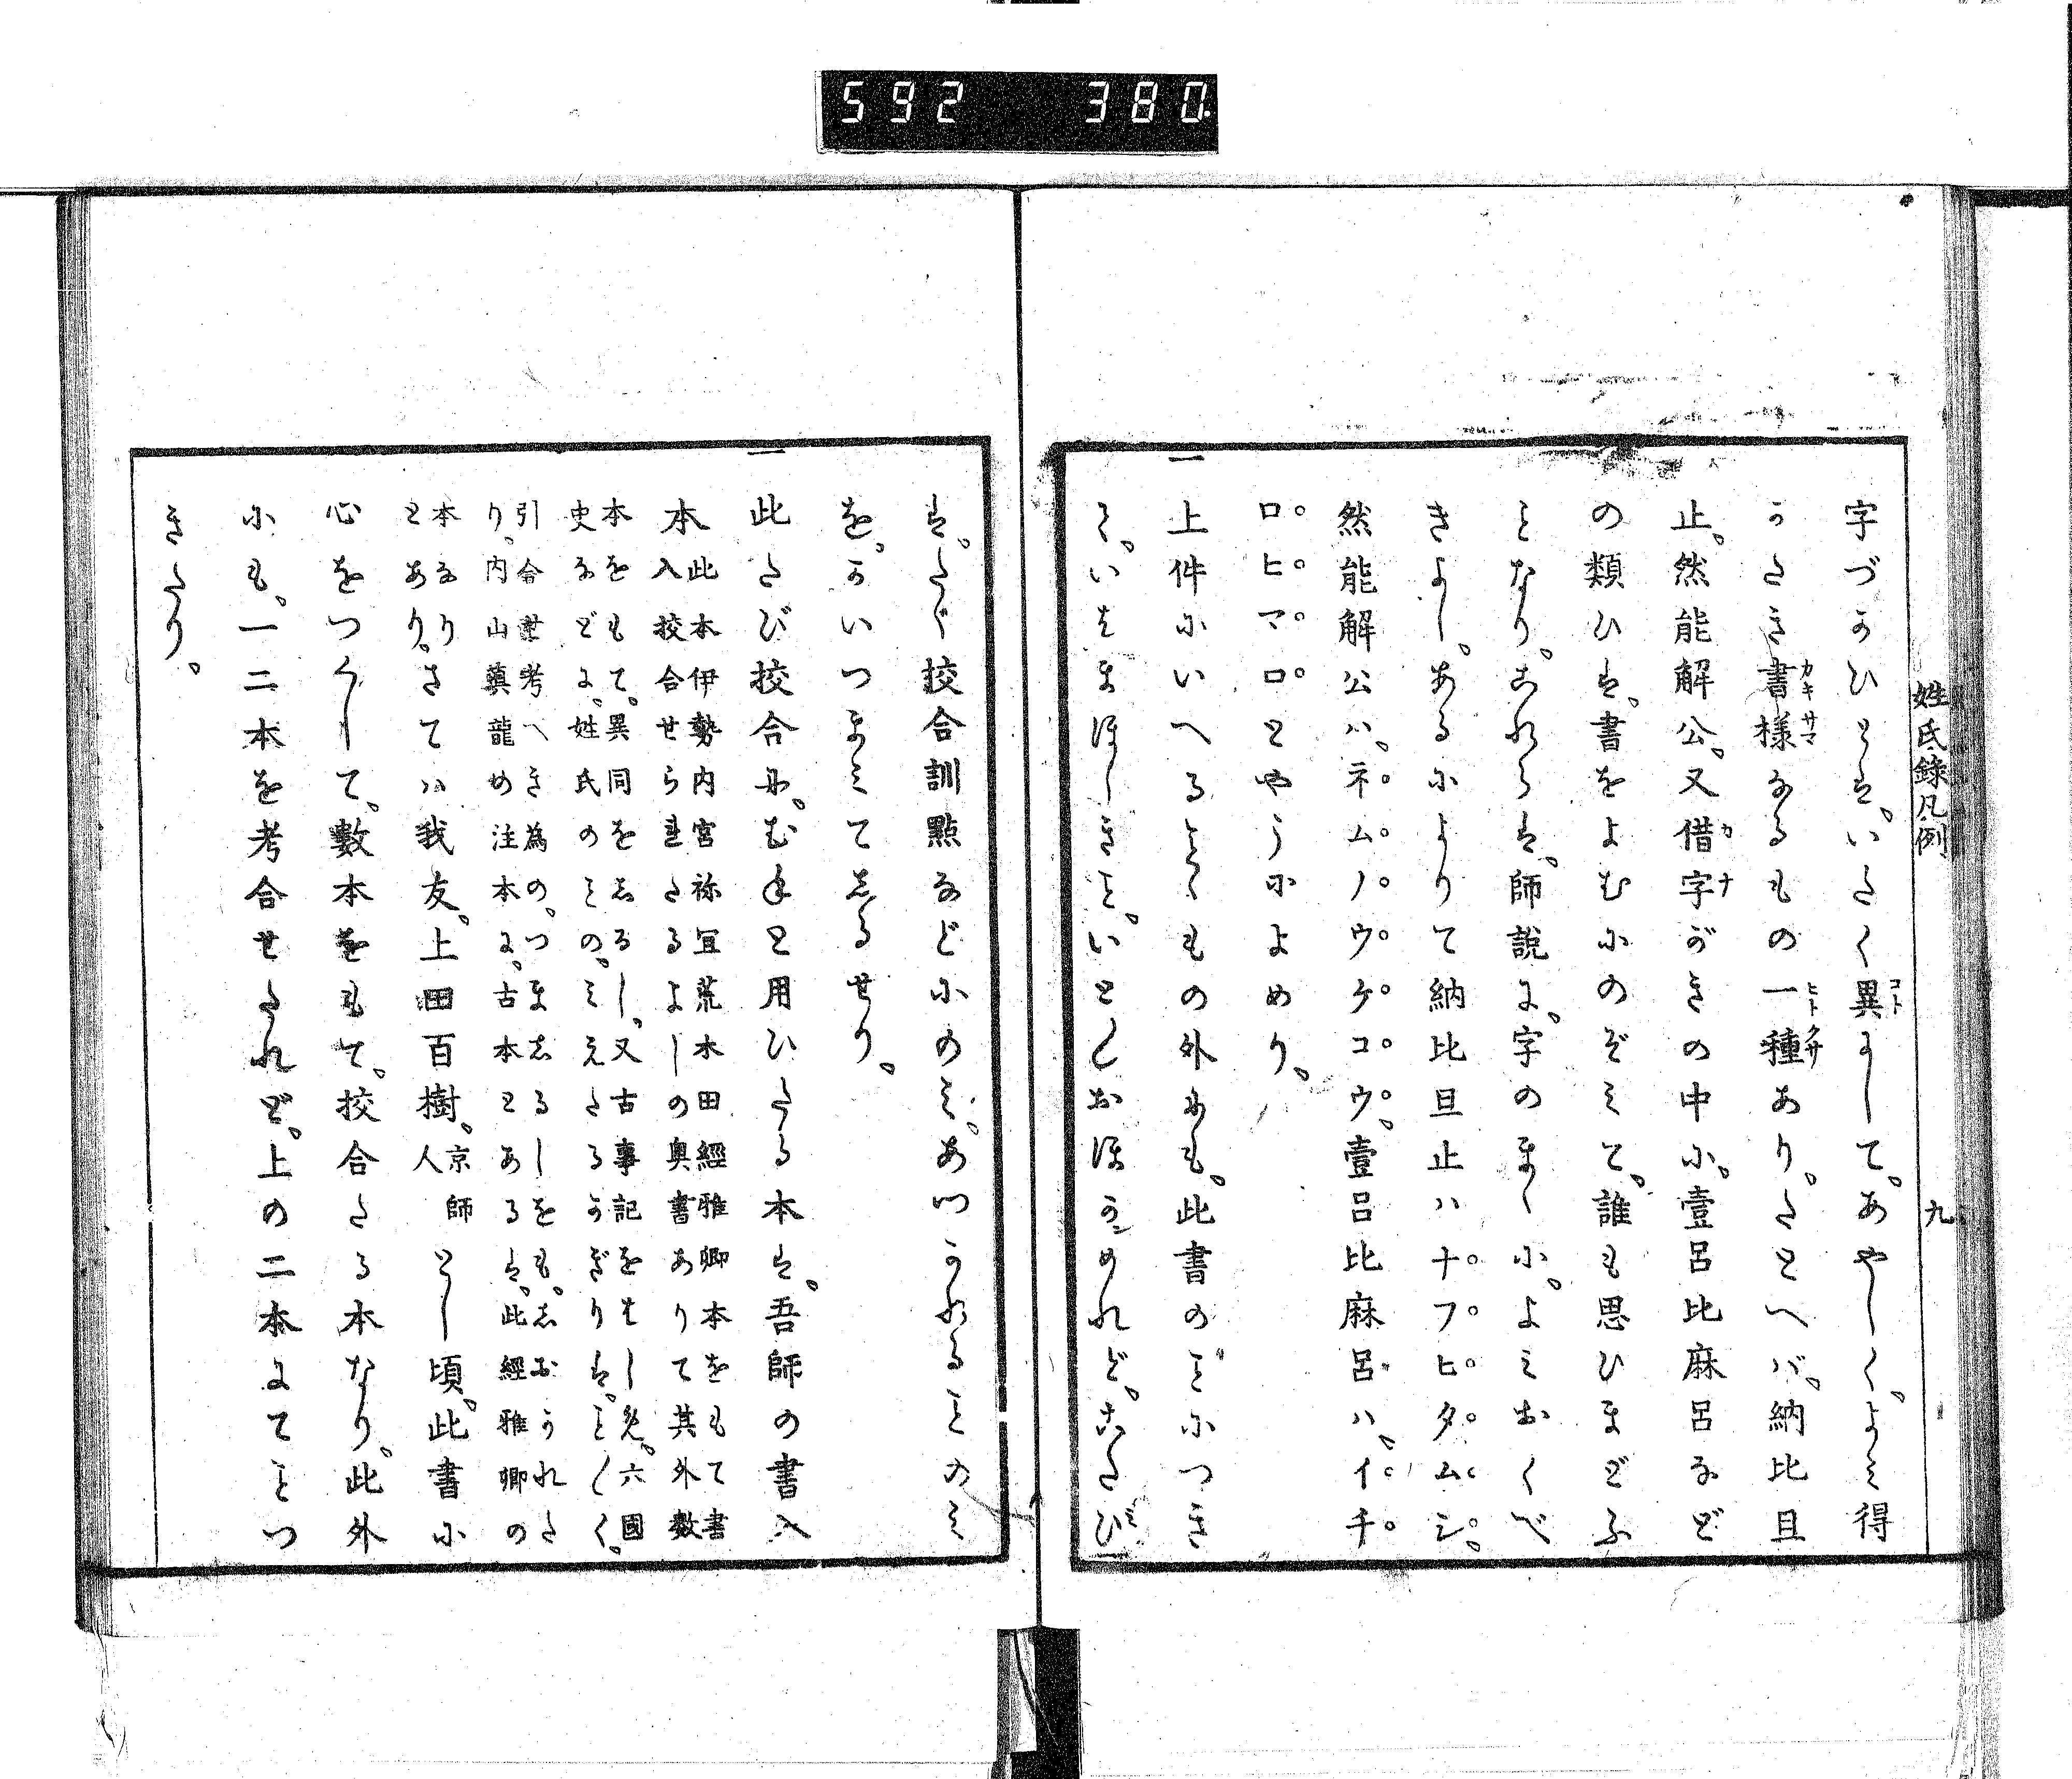 592 380
姓氏錄凡例
九
字づかひとは。いたく異にして。あやしく。よみ得
がたき書様なるもの一種あり。たとへバ。納比旦
止。然能解公。又借字がきの中に。壹呂比麻呂など
の類ひは。書をよむにのぞみて。誰も思ひまどふ
ことなり。これらは。師説に。字のまゝに。よみおくべ
きよし。あるによりて納比旦止ハナフヒタムシ。
然能解公ハ。ネムノウケコウ。壹呂比麻呂ハ。イチ
ロヒマロとやうによめり。
一上件にいへるともの外にも。此書のことにつき
て。いはまほしきこと。いとおほかめれど。こたび
は。たゞ挍合訓點などにのみ。あづかれることのみ
を。かいつまみてしるせり。
一此たび挍合に。むねと用ひたる本は。吾師の書入
本此本伊勢内宮祢宜荒木田經雅卿本をもて書
入挍合せられたるよしの奥書ありて其外數
本をもて。異同をしるし。又古事記をはじめ。六國
史などに。姓氏のことの。みえたるかぎりは。ことごとく。
引合せ考へき為の。つましるしをも。しおかれた
り。内山真龍の注本に。古本とあるは。此經雅卿の
本なり
とあり。さてハ我友。上田百樹。京師
人とし頃。此書に
心をつくして。數本をもて。挍合たる本なり。此外
にも。一二本を考合せたれど。上の二本にてことつ
きたり。